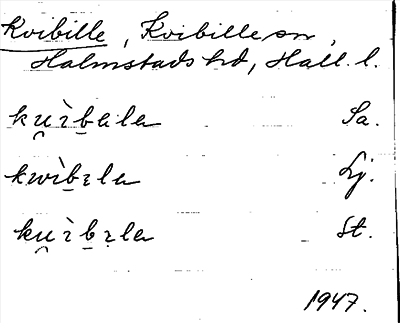 Kvibille, Kvibille sn,
Halmstads hd, Hall. l.
ku̯ìb̠ɛla Sa.
kwìb̠ɛla Lj.
ku̯ìb̠ɛla St.
1947.